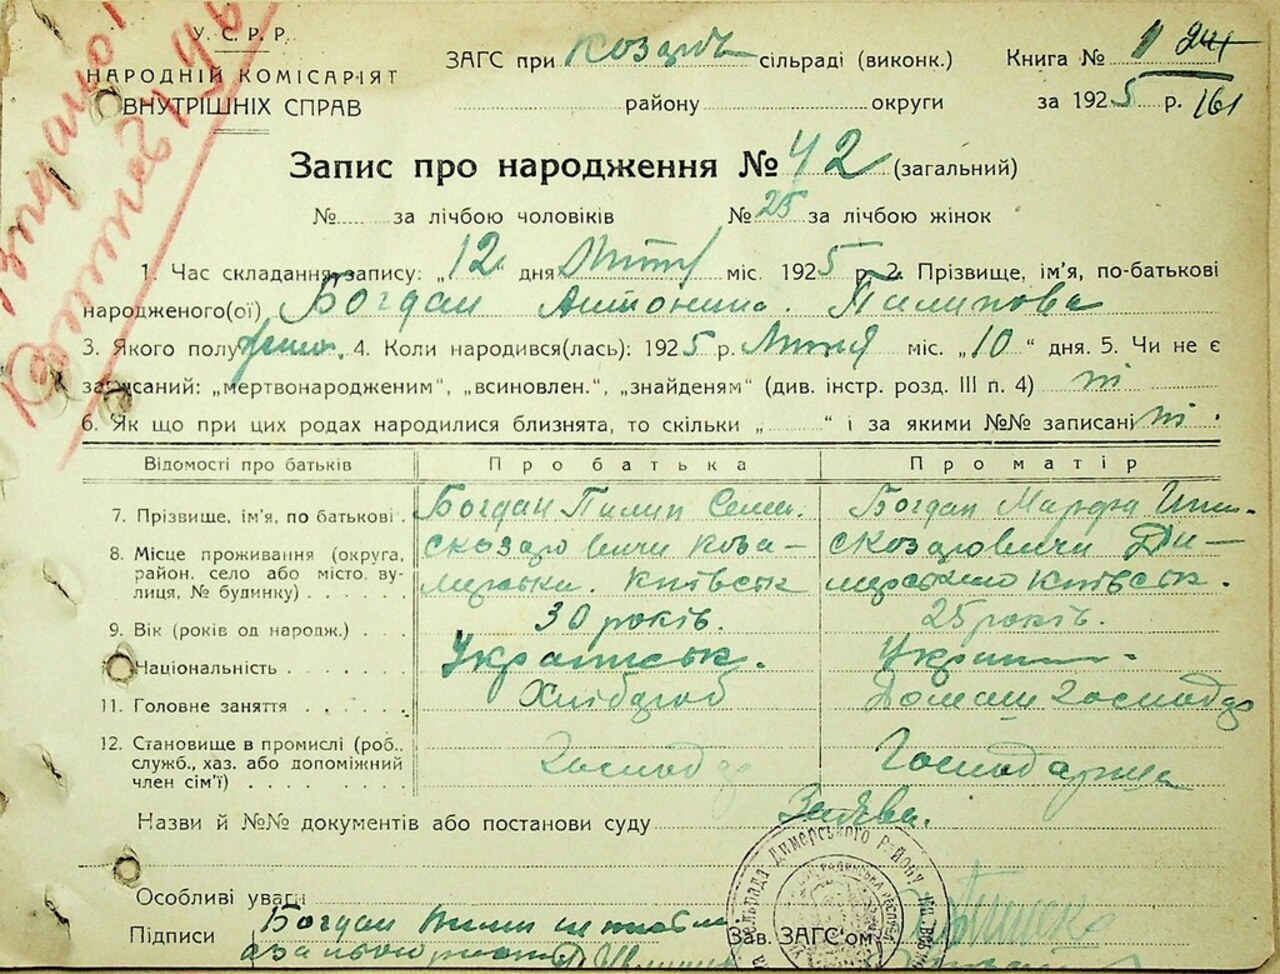 У.С.Р.Р.
НАРОДНІЙ КОМІСАРІЯТ
ВНУТРІШНІХ СПРАВ
ЗАГС при сільраді (виконк.)
району округи
Книга № 1 241
за 1925 р. 161
Запис про народження № 42 (загальний)
№ за лічбою чоловіків № 25 за лічбою жінок
1. Час складання запису: „12 дня міс. 1925 р. 2. Прізвище, ім'я, по-батькові
народженого(ої) Богдан Антонина Пилипова
3. Якого полу 4. Коли народився(лась): 1925 р. Лютня міс. „10“ дня. 5. Чи не є
записаний: „мертвонародженим“, „всиновлен.“, „знайденям“ (див. інстр. розд. III п. 4) ні
6. Як що при цих родах народилися близнята, то скільки „ “ і за якими №№ записані ні
Відомості про батьків Про батька Про матір
7. Прізвище, ім'я, по батькові Богдан Пилип Семен. Богдан Марфа
8. Місце проживання (округа,
район, село або місто, ву-
лиця, № будинку) Київськ Київськ.
9. Вік (років од народж.) 30 років. 25 років.
Національність Українськ. Украин
11. Головне заняття Хлібороб Домаш Господар
12. Становище в промислі (роб.,
служб., хаз. або допоміжний
член сім'ї) Господар Господарица
Назви й №№ документів або постанови суду Заява.
Особливі уваги
Підписи Богдан Пилип
Зав. ЗАГС'ом
Димерського району